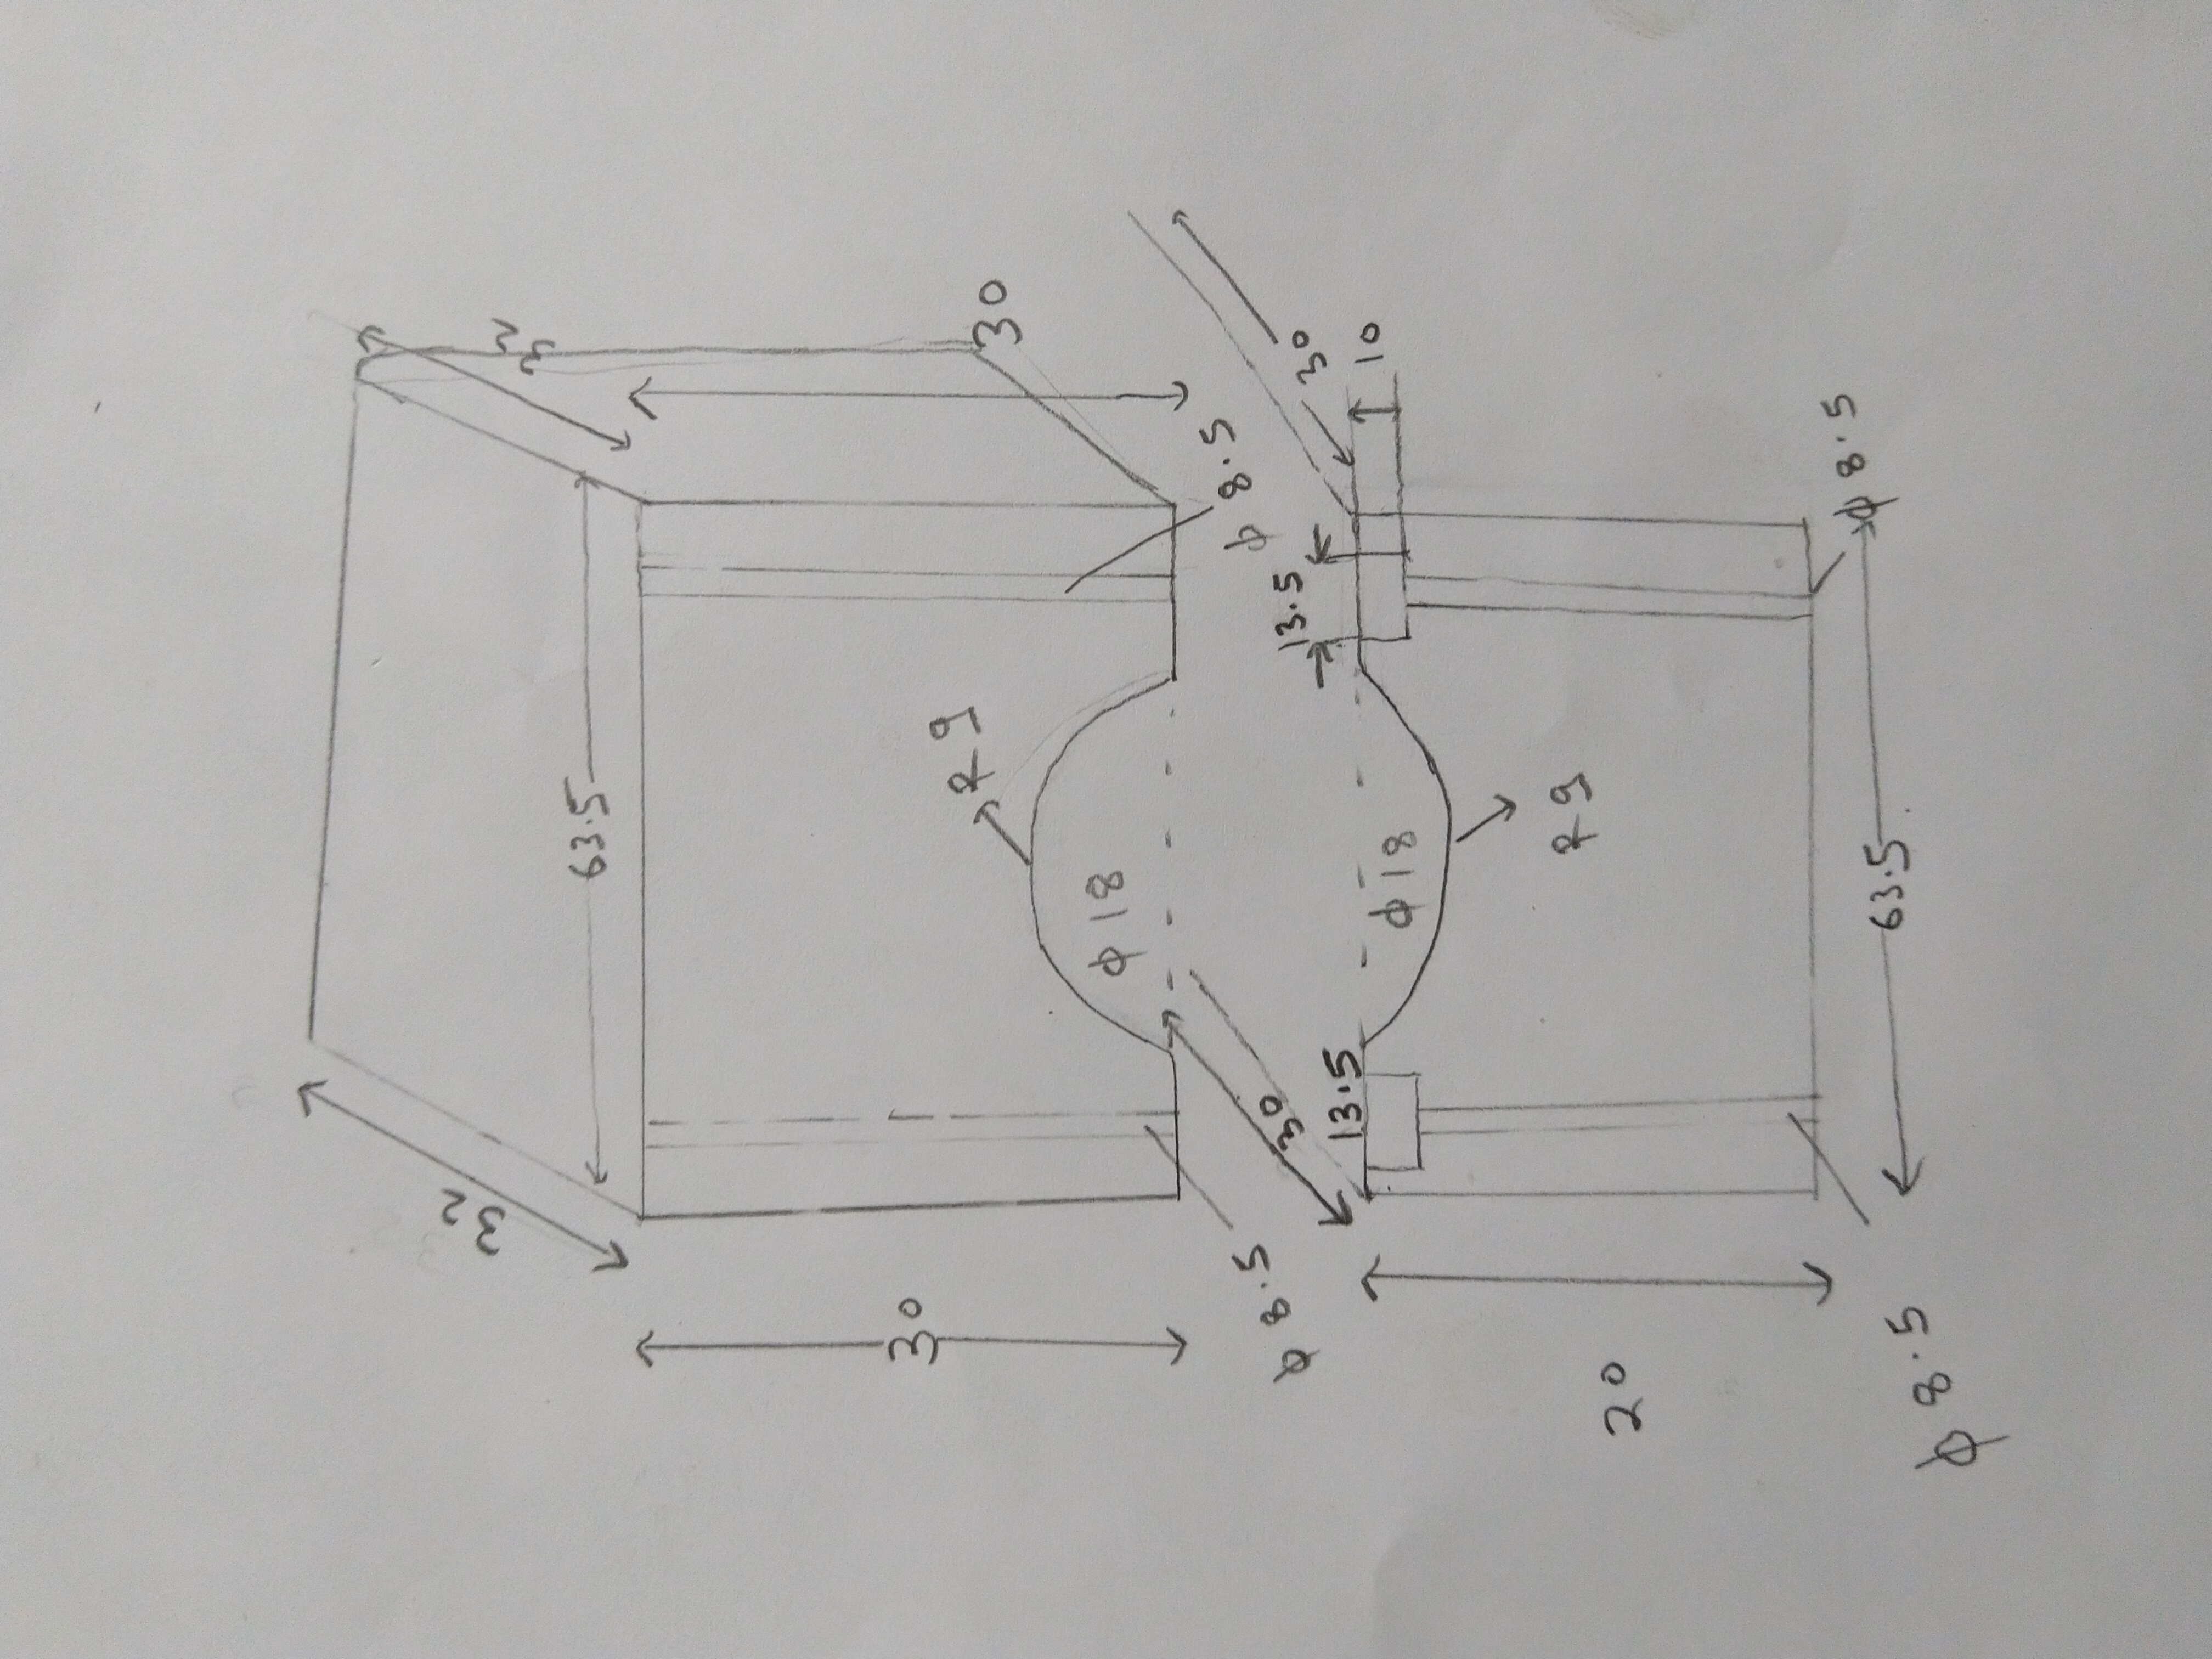 32
32
63.5
30
R9
30
φ18
φ8.5
φ8.5
30
13.5
30
13.5
10
φ18
R9
20
φ8.5
63.5
φ8.5